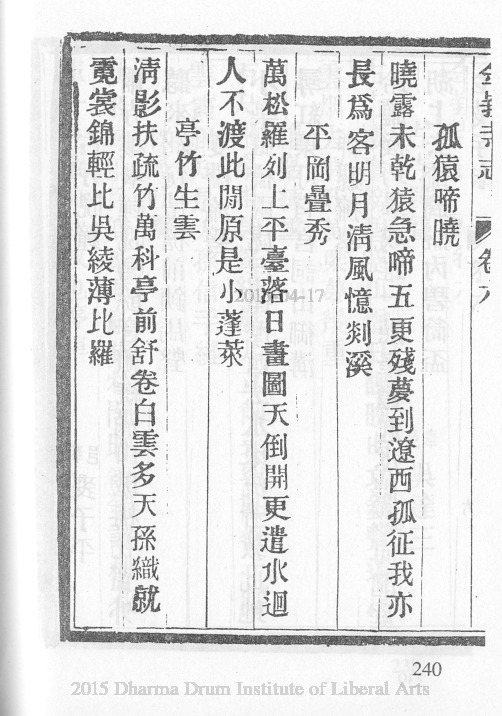 卷六
孤猿啼曉
曉露未乾猿急啼五更殘夢到遼西孤征我亦
長爲客明月清風憶剡溪
平岡疊秀
萬松羅列上平臺落日畫圖天倒開更遣水迴
人不渡此間原是小蓬萊
亭竹生雲
清影扶疏竹萬科亭前舒卷白雲多天孫織就
霓裳錦輕比吳綾薄比羅
2015-04-17
240
2015 Dharma Drum Institute of Liberal Arts